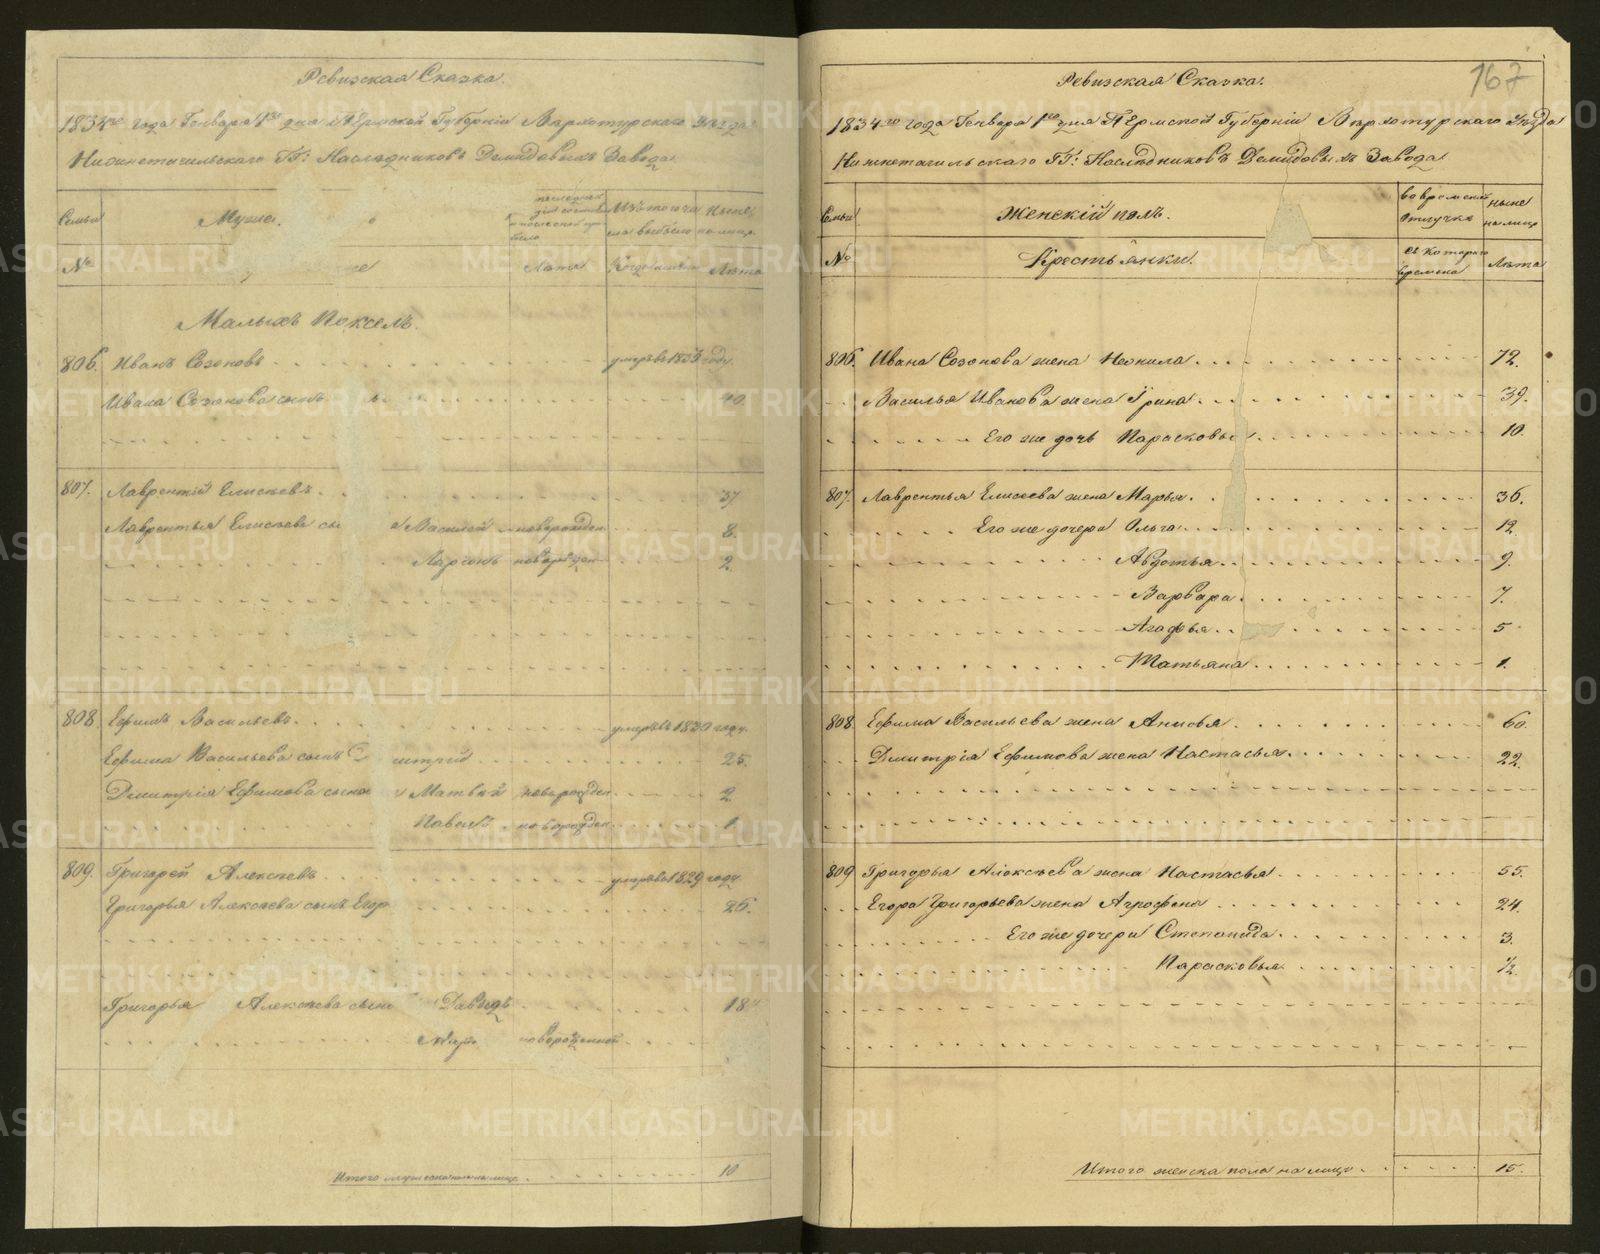 Ревизская Сказка.
1834го года Генваря 1го дня Пермской Губернiи Верхотурскаго Уезда
Нижнетагильскаго ГГ: Наследниковъ Демидовыхъ Завода
Семьи
№
Лета
Лета
806. Иванъ Созоновъ умеръ въ году
Ивана Созонова сынъ 40
807. Лаврентiй Елисеевъ 37
Лаврентья Елисеева Василей новорожден 8.
новорожден 2.
808. Ефимъ Васильевъ умеръ въ 1830 году
Ефима Васильева сынъ 25.
Дмитрiя Ефимова Матвей новорожден 2
Павелъ новорожден 1
809. Григорей Алексеевъ умеръ въ 1829 году
Григорья Алексеева сынъ Егор 26.
Григорья Алексеева Давыдъ 18
новорожденной
Итого на лицо 10
167
Ревизская Сказка.
1834го года Генваря 1го дня Пермской Губернiи Верхотурскаго Уезда
Нижнетагильскаго ГГ: Наследниковъ Демидовыхъ Завода
Семьи Женскiй полъ. во временной отлучке ныне на лицо
№ Крестьянки. съ котораго времена Лета
806. Ивана Созонова жена Неонила 72.
Василья Иванова жена Ирина 39.
Его же дочь Парасковья 10.
807. Лаврентья Елисеева жена Марья 36.
Его же дочери Ольга 12.
Авдотья 9.
Варвара 7.
Агафья 5
Татьяна 1.
808. Ефима Васильева жена Анисья 60.
Дмитрiя Ефимова жена Настасья 22.
809 Григорья Алексеева жена Настасья 55.
Егора Григорьева жена Агрофена 24.
Его же дочери Степанида 3.
Парасковья 1/2
Итого женска пола на лицо 15.
METRIKI.GASO-URAL.RU